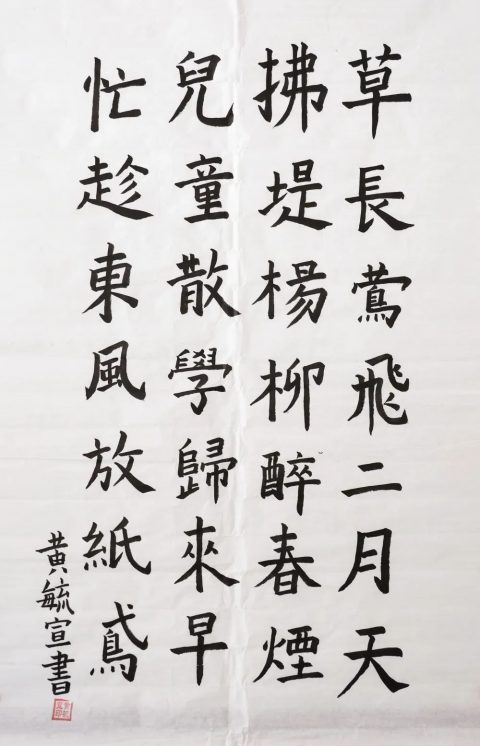 草長鶯飛二月天
拂堤楊柳醉春煙
兒童散學歸來早
忙趁東風放紙鳶
黃毓宣書